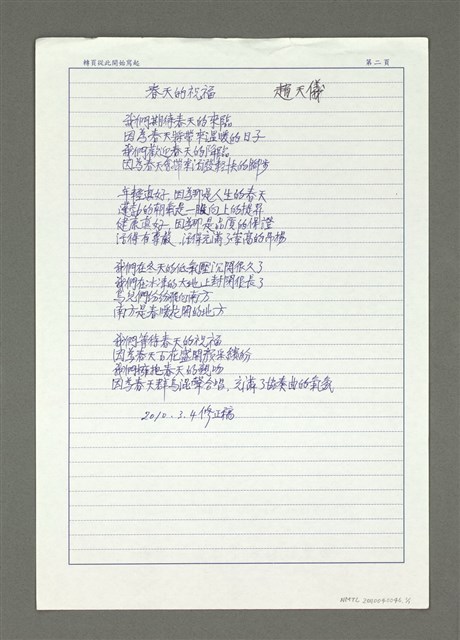 轉頁從此開始寫起
第二頁
春天的祝福 趙天儀
我們期待春天的來臨
因為春天將帶來溫暖的日子
我們歡迎春天的降臨
因為春天會帶來活潑輕快的腳步
年輕真好，因為那是人生的春天
蓬勃的朝氣是一股向上的提昇
健康真好，因為那是品質的保證
活得有尊嚴，活得充滿了崇高的昇揚
我們在冬天的低氣壓沉悶很久了
我們在冰凍的大地上封閉很長了
鳥兒們紛紛飛向南方
南方是春暖花開的地方
我們等待春天的祝福
因為春天百花盛開顏色繽紛
我們擁抱春天的熱
因為春天群鳥混聲合唱，充滿了協奏曲的氣氛
2010.3.4 修正稿